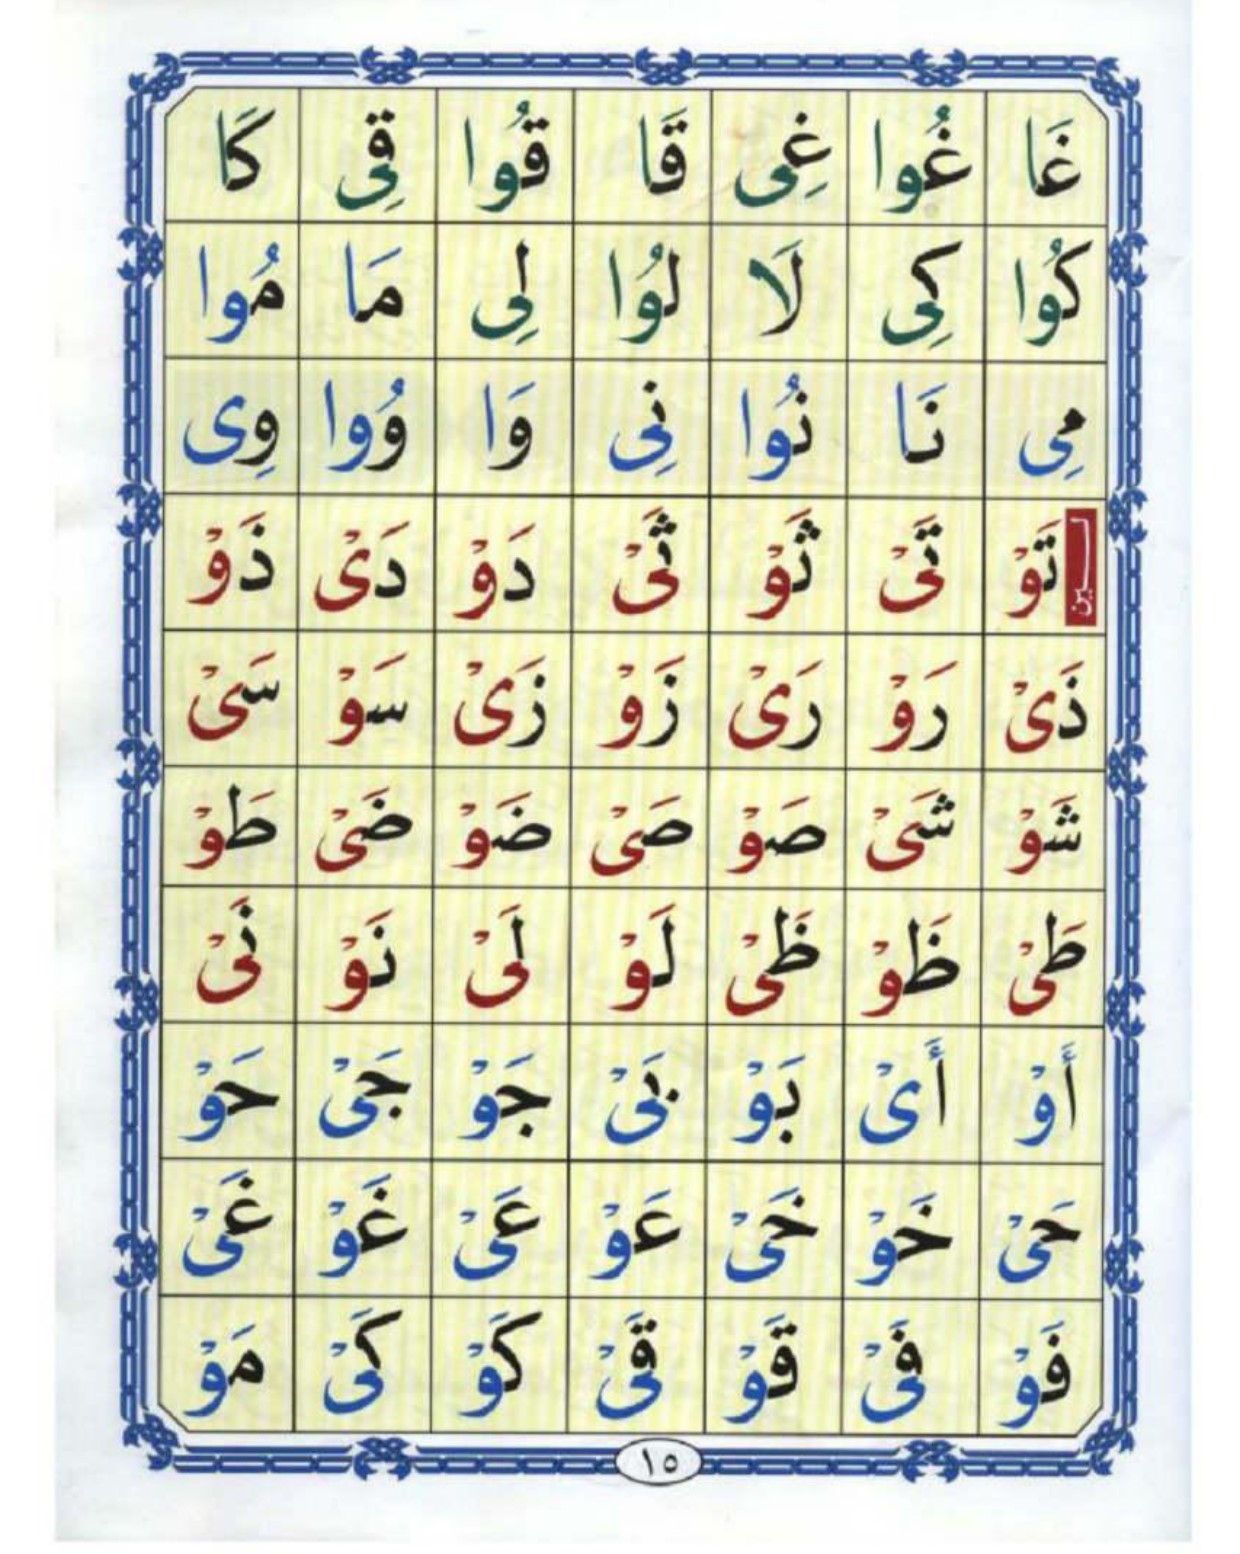 غَا غُوا غِى قَا قُوا قِى كَا
كُوا كِى لَا لُوا لِى مَا مُوا
مِى نَا نُوا نِى وَا وُوا وِى
لـين تَوْ تَىْ ثَوْ ثَىْ دَوْ دَىْ ذَوْ
ذَىْ رَوْ رَىْ زَوْ زَىْ سَوْ سَىْ
شَوْ شَىْ صَوْ صَىْ ضَوْ ضَىْ طَوْ
طَىْ ظَوْ ظَىْ لَوْ لَىْ نَوْ نَىْ
أَوْ أَىْ بَوْ بَىْ جَوْ جَىْ حَوْ
حَىْ خَوْ خَىْ عَوْ عَىْ غَوْ غَىْ
فَوْ فَىْ قَوْ قَىْ كَوْ كَىْ مَوْ
١٥